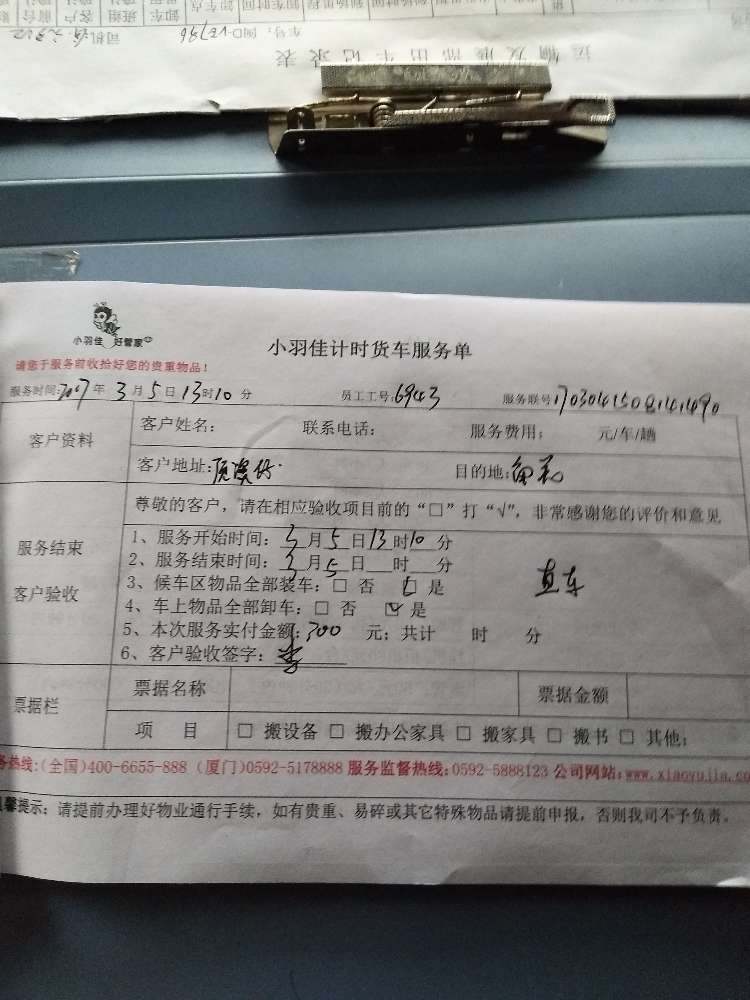 运输发展部出车记录表
车号：闽D·VB786
司机
小羽佳 好管家
小羽佳计时货车服务单
请您于服务前收拾好您的贵重物品！
服务时间:2017年3月5日13时10分 员工工号:6943 服务联号:1703041508141490
客户资料
客户姓名： 联系电话： 服务费用： 元/车/趟
客户地址: 目的地:
服务结束
客户验收
尊敬的客户，请在相应验收项目前的“□”打“√”，非常感谢您的评价和意见
1、服务开始时间：3月5日13时10分
2、服务结束时间：3月5日 时 分
3、候车区物品全部装车：□ 否 □ 是
4、车上物品全部卸车：□ 否 ☑ 是
直车
5、本次服务实付金额:300 元；共计 时 分
6、客户验收签字：李
票据栏
票据名称 票据金额
项 目 □ 搬设备 □ 搬办公家具 □ 搬家具 □ 搬书 □ 其他：
务热线:(全国)400-6655-888 (厦门)0592-5178888 服务监督热线:0592-5888123 公司网站:www.xiaoyujia.co
馨提示：请提前办理好物业通行手续，如有贵重、易碎或其它特殊物品请提前申报，否则我司不予负责。